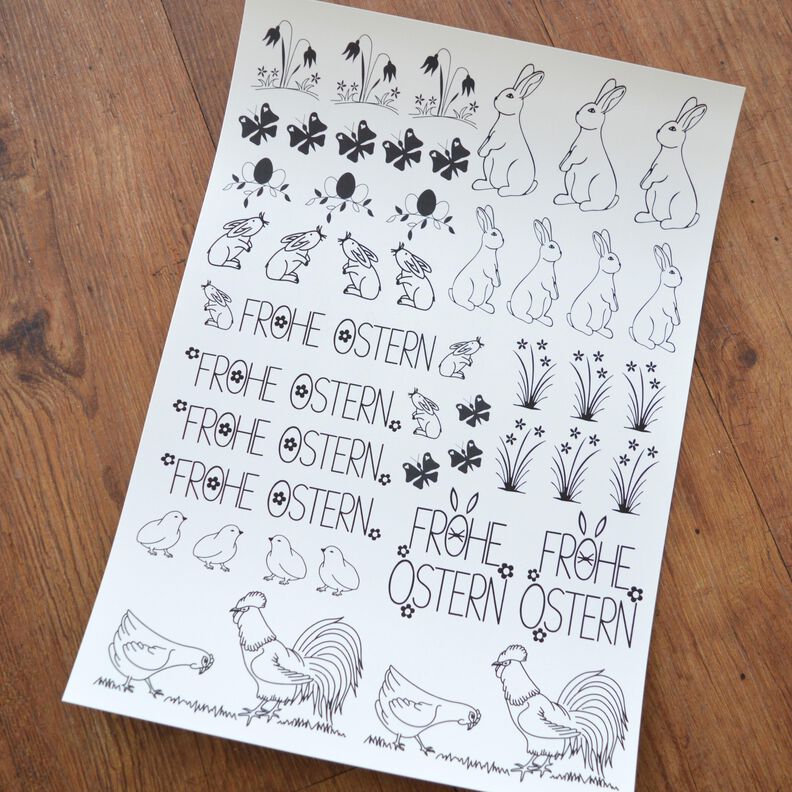 FROHE OSTERN
FROHE OSTERN
FROHE OSTERN
FROHE OSTERN
FROHE
OSTERN
FROHE
OSTERN